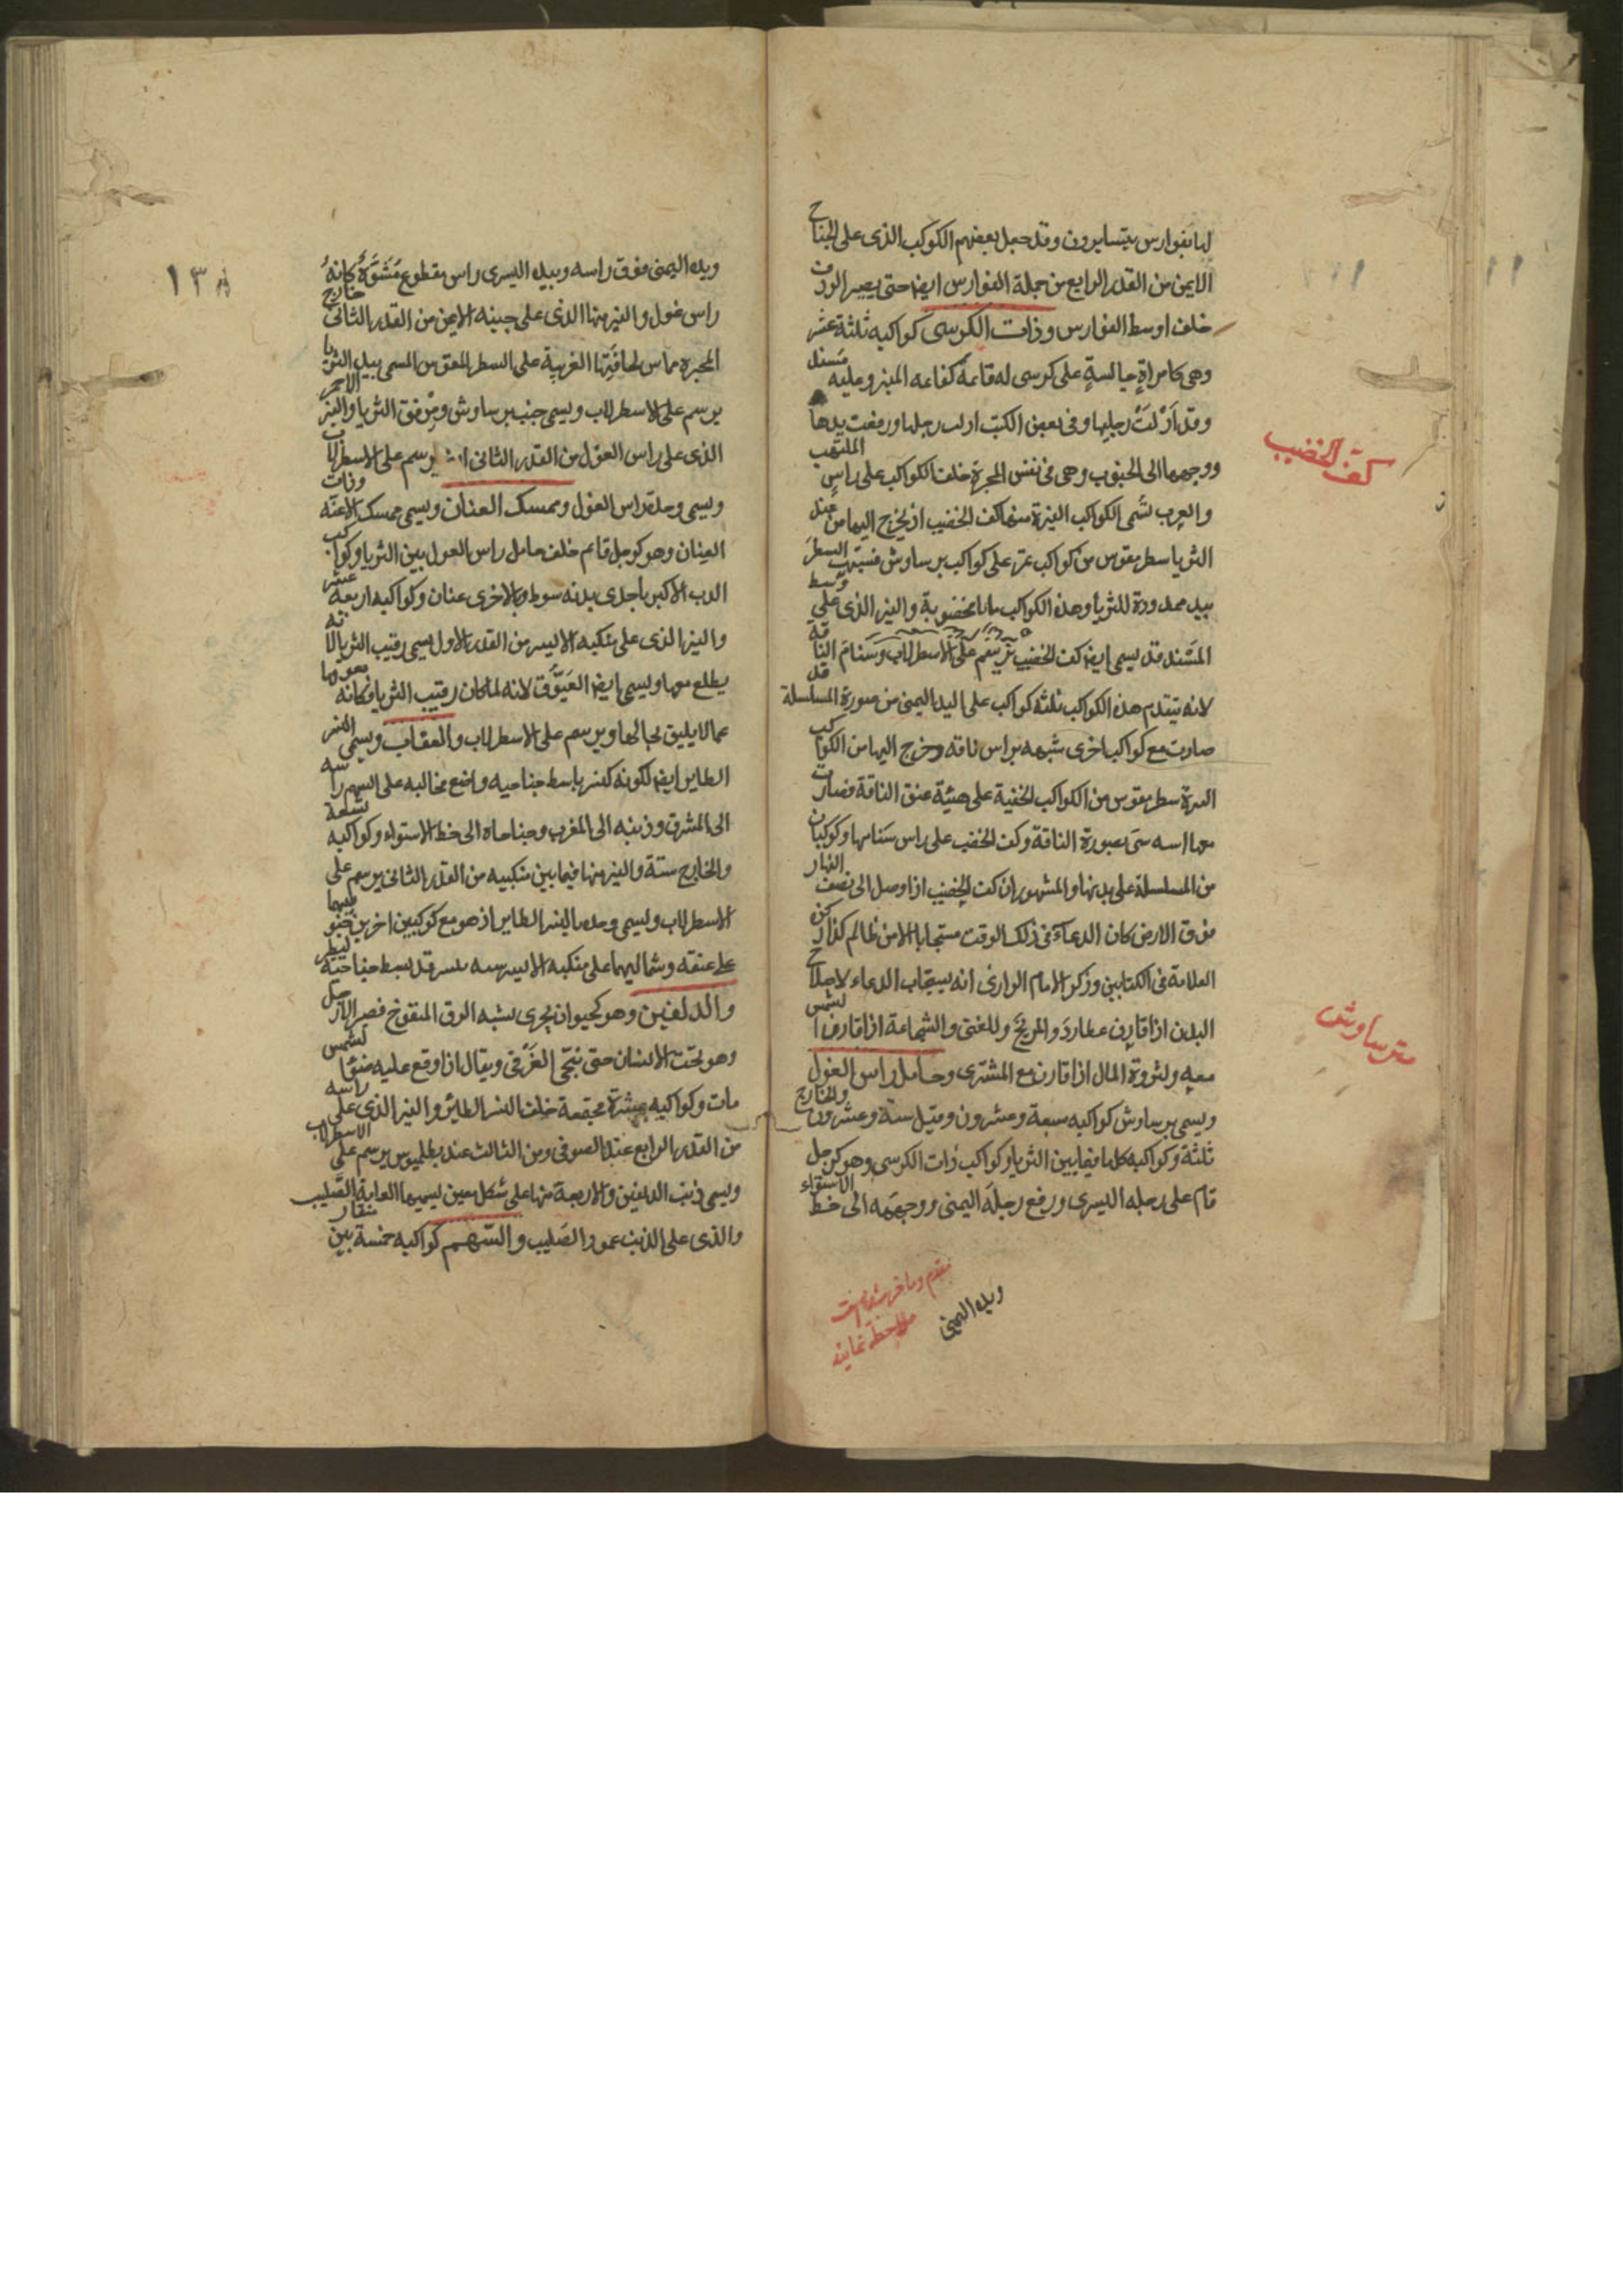 لها بفوارس يتسايرون وقد جعل بعضهم الكوكب الذى على الجناح
الايمن من القدر الرابع من جملة الفوارس ايضا حتى يصير الردف
خلف اوسط الفوارس وذات الكرسى كواكبه ثلثة عشر
وهى كامراة جالسة على كرسى له قائمة كقائمة المنبر وعليه مسند
وقد ادلت رجليها وفى بعض الكتب ادلت رجلها ورفعت يدها
ووجهها الى الجنوب وهى فى نفس المجرة خلف الكواكب على راس الملتهب
والعرب تسمى الكواكب النيرة منها كف الخضيب اذ يخرج اليها من عند
الثريا سطر مقوس من كواكب تمر على كواكب برساوش فشبهت السطر
بيد ممدودة للثريا وهذه الكواكب بانامل مخضوبة والنير الذى على وسط
المسند قد يسمى ايضا كف الخضيب يرسم على الاسطرلاب وسنام الناقة
لانه يتقدم هذه الكواكب ثلثة كواكب على اليد اليمنى من صورة المسلسلة قد
صارت مع كواكب اخرى شبيهه براس ناقه وخرج اليها من الكواكب
النيرة سطر مقوس من الكواكب الخفية على هيئة عنق الناقة فصارت
بصورة الناقة وكف الخضيب على راس سنامها وكوكبان
من المسلسلة على بدنها والمشهور ان كف الخضيب اذا وصل الى نصف النهار
فوق الارض كان الدعاء فى ذلك الوقت مستجابا الا من ظالم كذا ذكره
العلامة فى الكتابين وذكر الامام الرازى انه يستجاب الدعاء لاصلاح
البدن اذا قارن عطارد والمريخ وللغنى والشجاعة اذا قارن الشمس
معه ولثروة المال اذا قارن مع المشترى وحامل راس الغول
ويسمى برساوش كواكبه سبعة وعشرون وقيل ستة وعشرون والخارج
ثلثة وكواكبه كلها فيما بين الثريا وكواكب ذات الكرسى وهو كرجل
قام على رجله اليسرى ورفع رجله اليمنى ووجهه الى خط الاستواء
ويده اليمنى
كف الخضيب
برساوش
١٣
ويده اليمنى فوق راسه وبيده اليسرى راس مقطوع مشوه كانه
راس غول والنير منها الذى على جنبه الايمن من القدر الثانى خارج
المجرة مماس لحافتها الغربية على السطر المقوس المسمى بيد الثريا
يرسم على الاسطرلاب ويسمى جنب برساوش ومرفق الثريا والنير الاحمر
الذى على راس الغول من القدر الثانى يرسم على الاسطرلاب
ويسمى وحده راس الغول وممسك العنان ويسمى ممسك الاعنه وذات
العنان وهو كرجل قايم خلف حامل راس الغول بين الثريا وكواكب
الدب الاكبر باحدى يديه سوط وبالاخرى عنان وكواكبه اربعة عشر
والنير الذى على منكبه الايسر من القدر الاول يسمى رقيب الثريا لانه
يطلع معها ويسمى ايضا العيوق لانه لما كان رقيب الثريا فكانه يعوقها
عما لا يليق بحالها ويرسم على الاسطرلاب والعقاب ويسمى النسر
الطاير ايضا لكونه كنسر باسط جناحيه واضع مخالبه على السهم راسه
الى المشرق وذنبه الى المغرب وجناحاه الى خط الاستواء وكواكبه تسعة
والخارج ستة والنير منها فيما بين منكبيه من القدر الثانى يرسم على
الاسطرلاب ويسمى وحده بالنسر الطاير اذ هو مع كوكبين اخرين جنوبيهما
على عنقه وشماليهما على منكبه الايسر قد بسط جناحيه ليطير
والدلفين وهو كحيوان بحرى يشبه الزق المنفوخ قصير الارجل
وهو تحت الانسان حتى ينجى الغرقى ويقال اذا وقع عليه ضوء الشمس
مات وكواكبه عشرة مجتمعة خلف النسر الطاير والنير الذى على راسه
من القدر الرابع عند الصوفى ومن الثالث عند بطلميوس يرسم على الاسطرلاب
ويسمى ذنب الدلفين والاربعة منها على شكل معين يسميها العامة الصليب
والذى على الذنب عمود الصليب والسهم كواكبه خمسة بين منقار